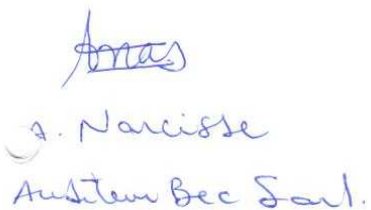 Anas
A. Narcisse
Auditeur Bec Sarl.